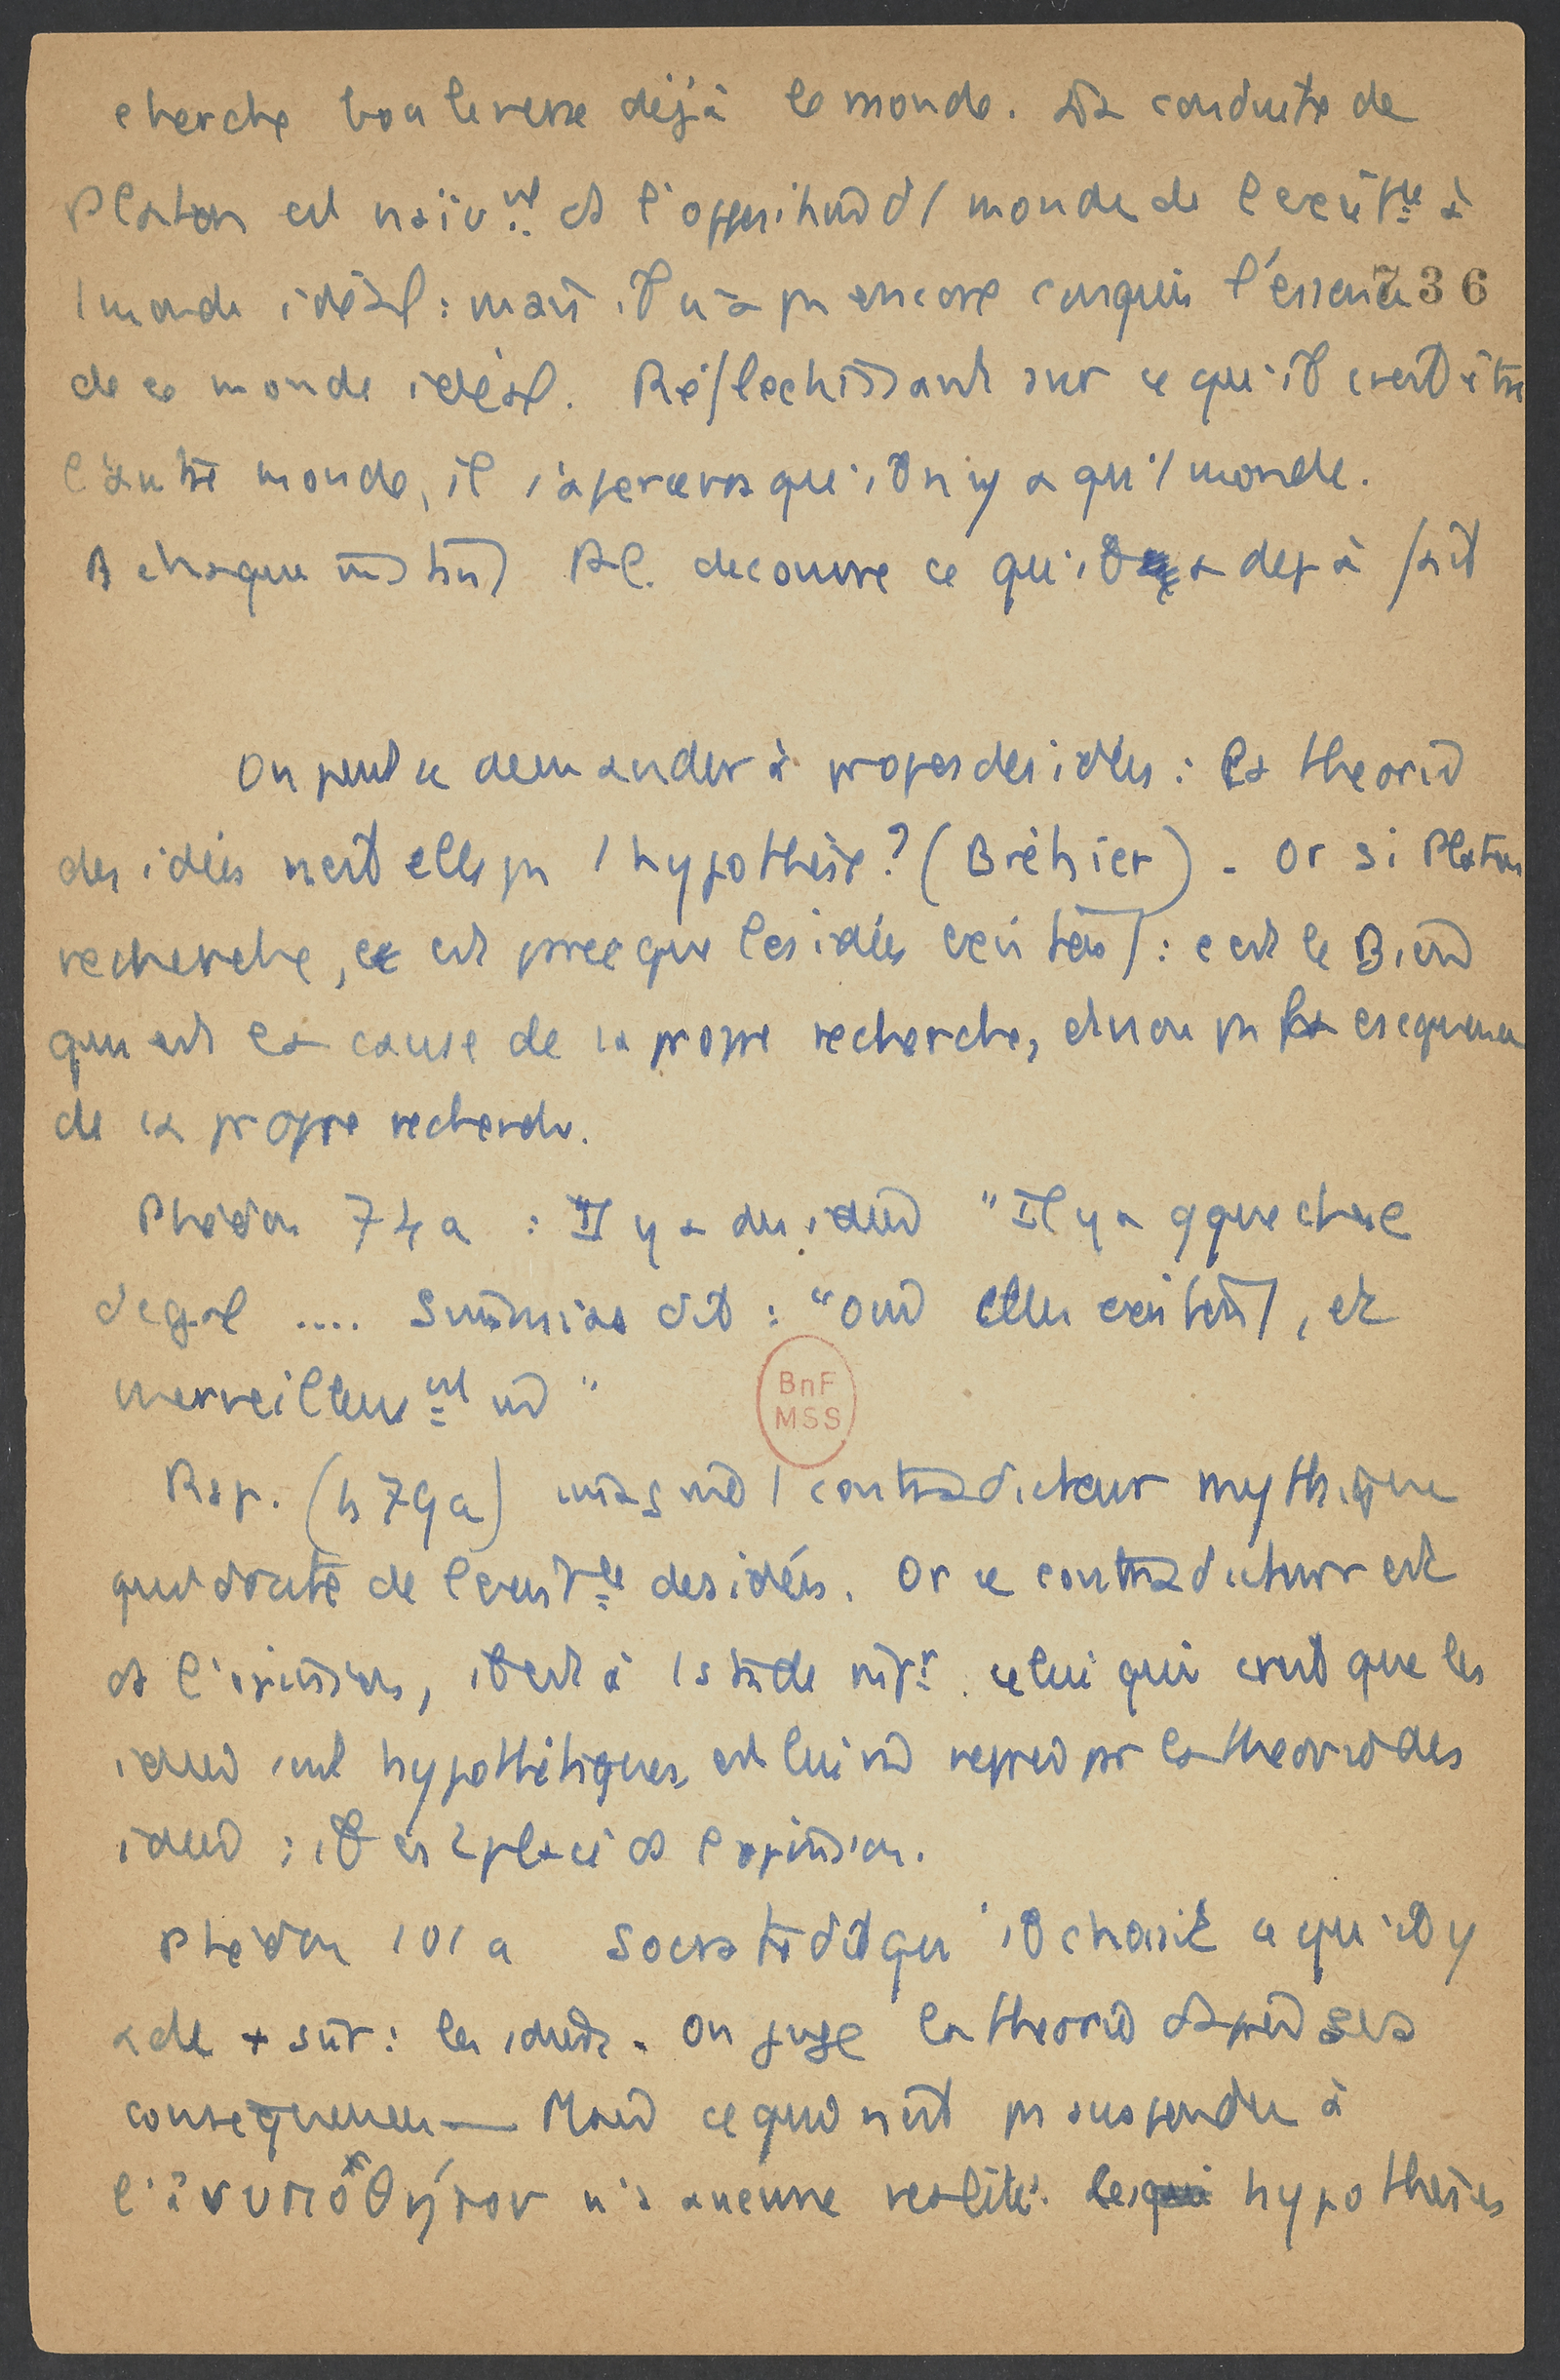 cherche bouleverse déjà le monde. La conduite de
Platon est naïvt ds l'opposition d'1 monde de l'existce à
1 monde idéal : mais il n'a pas encore conquis l'essence
736
de ce monde idéal. Réflechissant sur ce qu'il croit être
l'autre monde, il s'apercevra qu'il n'y a qu'1 monde.
A chaque instant Pl. decouvre ce qu'il a deja fait
On peut se demander à propos des idées : la theorie
des idées n'est elle pas 1 hypothèse ? (Bréhier) - Or si Platon
recherche, ce est parce que les idées existent : c'est le Bien
qui est la cause de sa propre recherche, et non pas la csequence
de sa propre recherche.
Phédon 74a : Il y a des idées "Il y a qque chose
d'egal .... Simmias dit : "oui elles existent, et
merveilleust "
Rép. (479a) imagine 1 contradicteur mythique
qui doute de l'existce des idées. Or ce contradicteur est
ds l'opinion, il est à 1 stade infr. celui qui croit que les
idées sont hypothétiques, est lui mê repris par la theorie des
idées : il est placé ds l'opinion.
Phédon 101a Socrate dit qu'il choisit ce qu'il y
a de + sûr : les idées. On juge la theorie d'après ses
consequences — Mais ce qui n'est pas suspendu à
l'ἀνυπόθητον n'a aucune realité. les hypothèses
BnF
MSS